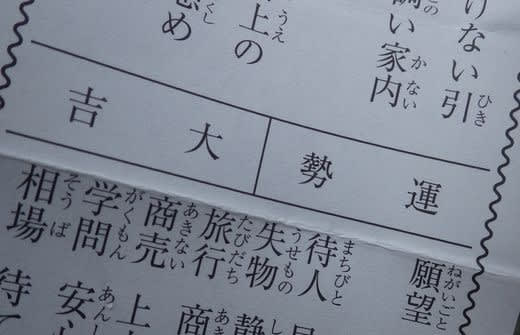 けない引
調い家内
上の
慰め
運勢
大吉
願望
待人
失物
旅行
商売
学問
相場
静
商
上
安心
待て